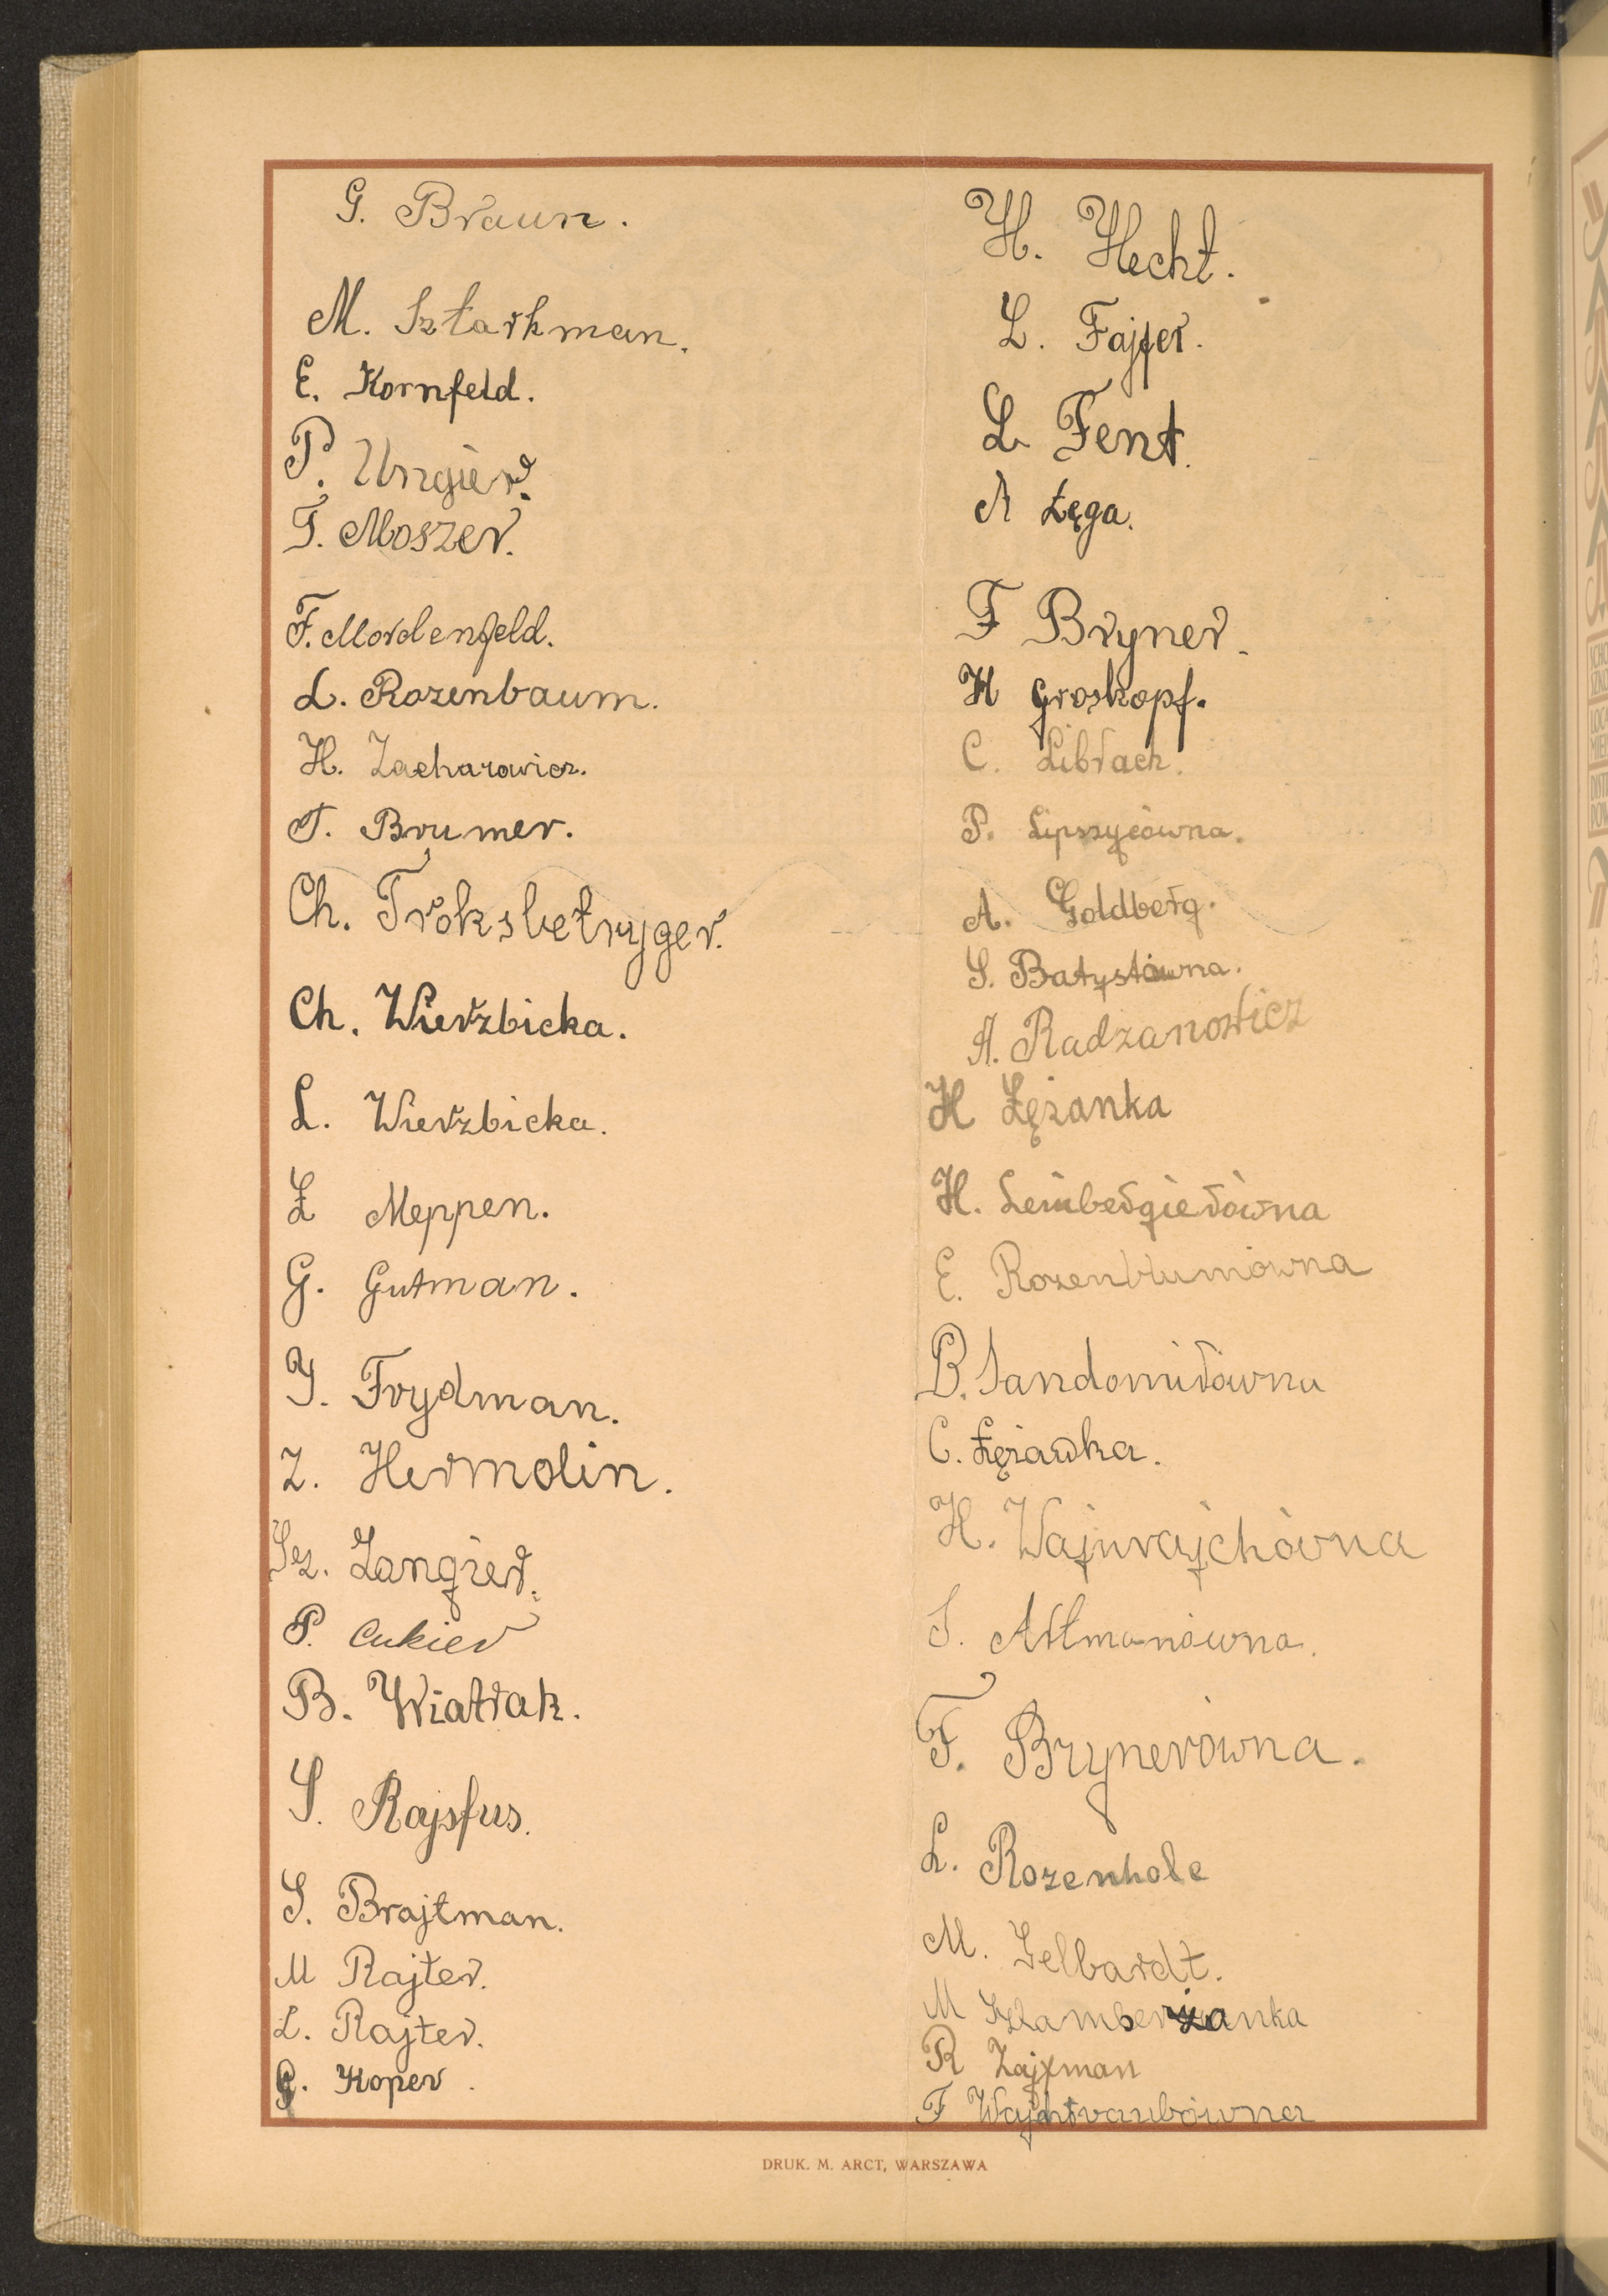 G. Braun.
M. Sztarkman.
E. Kornfeld.
P. Ungier.
T. Moszer.
F. Mordenfeld.
L. Rozenbaum.
H. Zacharowicz.
T. Brumer.
Ch.
Ch. Wierzbicka.
L. Wierzbicka.
Ł Meppen.
G. Gutman.
Y. Frydman.
Z. Hermolin.
Sz. Zangier.
P. Cukier
B. Wiatrak.
S. Rajsfus.
S. Brajtman.
M Rajter.
L. Rajter.
G. Koper.
H. Hecht.
L. Fajfer.
L. Fent.
A Łęga.
F Bryner.
H Groskopf.
C. Librach.
P. Lipszycówna.
A. Goldberg.
S. Batystówna.
A. Radzanowicz
H Łężanka
H. Lembergierówna
E. Rozenblumówna
B. Sandomirówna
C. Łężanka.
H. Wajnrajchówna
S. Altmanówna.
F. Brynerówna.
L. Rozenhole
M. Gelbardt.
M
R Zajfman
F Wajntraubówna
DRUK. M. ARCT, WARSZAWA